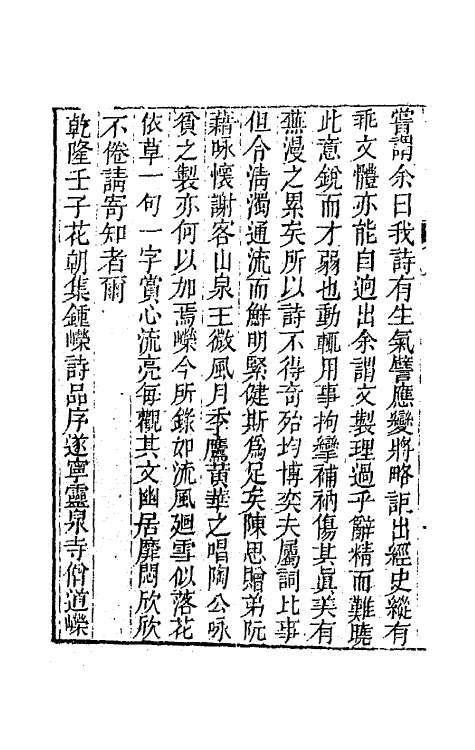 嘗謂余曰我詩有生氣譬應變將略詎出經史縱有
乖文體亦能自迥出余謂文製理過乎辭精而難曉
此意銳而才弱也動輒用事拘攣補衲傷其眞美有
蕪漫之累矣所以詩不得奇殆均博奕夫屬詞比事
但令淸濁通流而鮮明緊健斯爲足矣陳思贈弟阮
藉咏懷謝客山泉王微風月季鷹黃華之唱陶公咏
貧之製亦何以加焉嶸今所錄如流風廻雪似落花
依草一句一字賞心流亮每觀其文幽居靡悶欣欣
不倦請寄知者爾
乾隆壬子花朝集鍾嶸詩品序遂寧靈泉寺僧道嶸